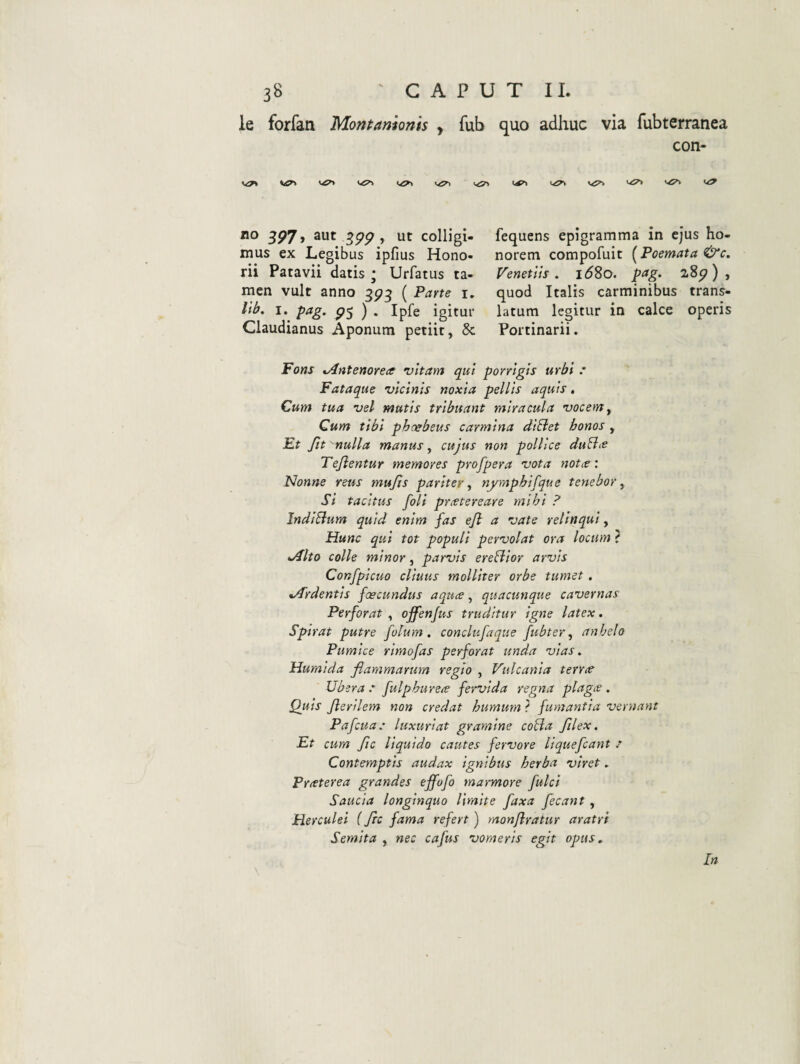 38 CAPUT II.
le forſan Montanionis , ſub quo adhuc via ſubterranea
con-
no 397, aut 399, ut colligi-
mus ex Legibus ipſius Hono-
rii Patavii datis ; Urſatus ta-
men vult anno 393 ( Parte 1.
lib. 1. pag. 95 ) . Ipſe igitur
Claudianus Aponum petiit, &
ſequens epigramma in ejus ho-
norem compoſuit ( Poemata &c.
Venetiis . 1680. pag. 289 ) ,
quod Italis carminibus trans-
latum legitur in calce operis
Portinarii.
Fons Antenoreæ vitam qui porrigis urbi :
Fataque vicinis noxia pellis aquis .
Cum tua vel mutis tribuant miracula vocem,
Cum tibi phœbeus carmina dictet honos ,
Et ſit nulla manus, cujus non pollice ductæ
Teſtentur memores proſpera vota notæ :
Nonne reus muſis pariter, nymphiſque tenebor,
Si tacitus ſoli prætereare mihi ?
Indictum quid enim fas eſt a vate relinqui,
Hunc qui tot populi pervolat ora locum ?
Alto colle minor, parvis erectior arvis
Conſpicuo cliuus molliter orbe tumet .
Ardentis fœcundus aquæ, quacunque cavernas
Perforat , offenſus truditur igne latex.
Spirat putre ſolum . concluſaque ſubter, anhelo
Pumice rimoſas perforat unda vias.
Humida flammarum regio , Vulcania terræ
Ubera : ſulphureæ fervida regna plagæ .
Quis ſterilem non credat humum ? fumantia vernant
Paſcua: luxuriat gramine cocta ſilex.
Et cum ſic liquido cautes fervore liqueſcant :
Contemptis audax ignibus herba viret .
Præterea grandes effoſo marmore ſulci
Saucia longinquo limite ſaxa ſecant ,
Herculei ( ſic fama refert ) monſtratur aratri
Semita , nec caſus vomeris egit opus.
In